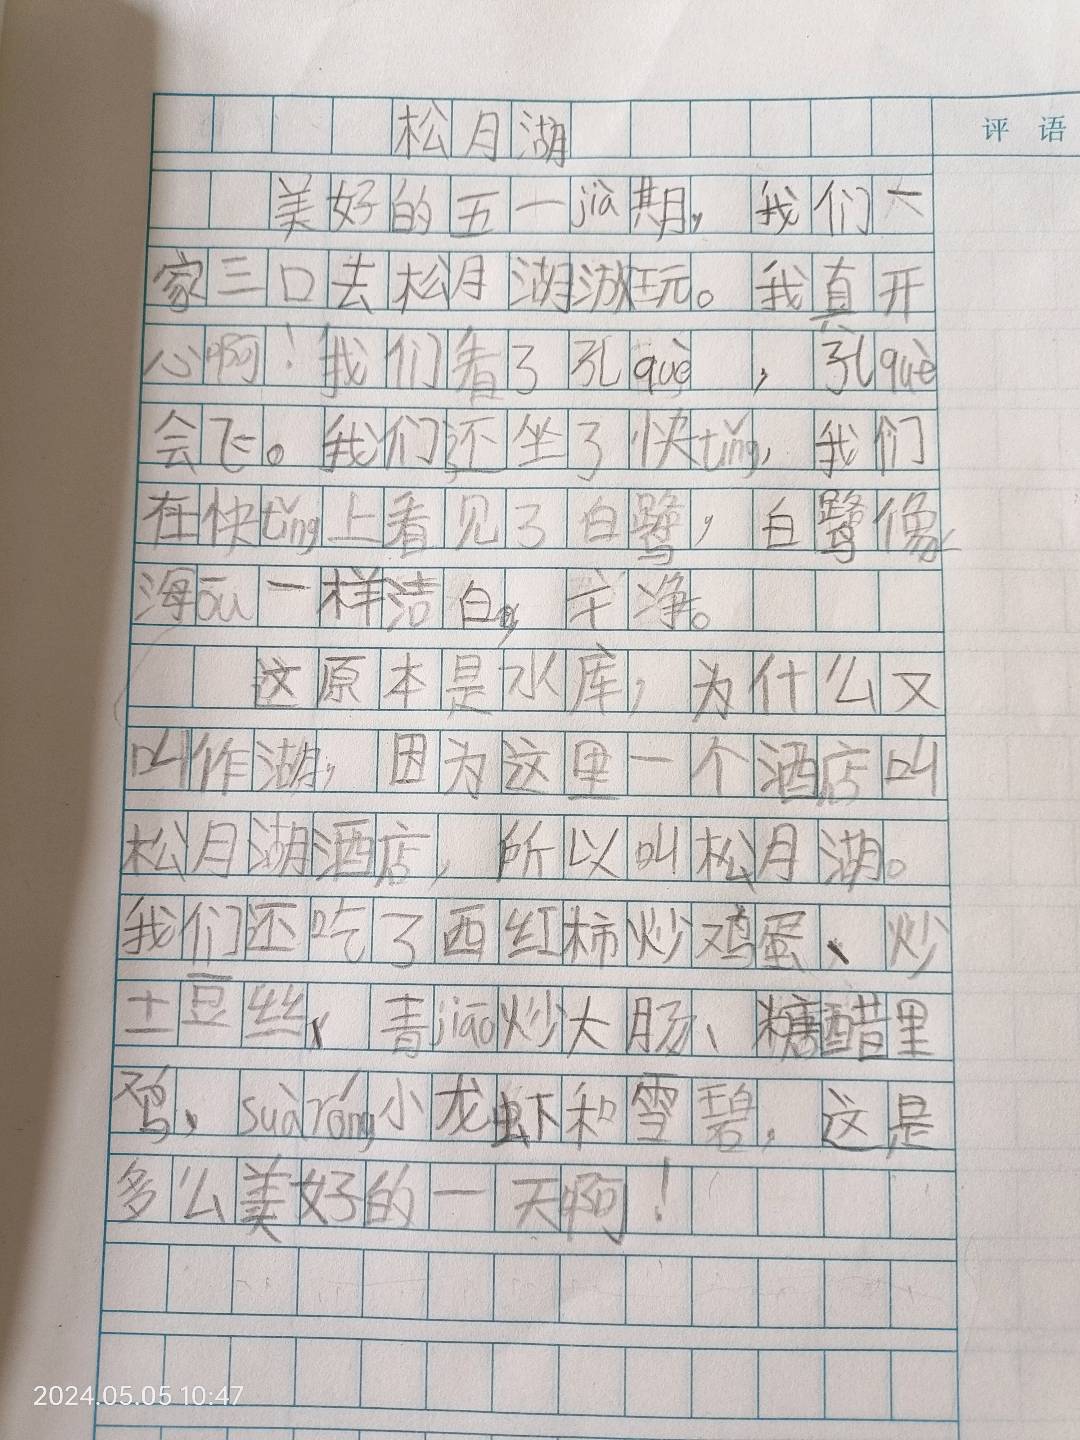 评 语
松月湖
美好的五一jià期，我们六
家三口去松月湖游玩。我真开
心啊！我们看了孔què，孔què
会飞。我们还坐了快tǐng，我们
在快tǐng上看见了白鹭，白鹭像
海ōu一样洁白，干净。
这原本是水库，为什么又
叫作湖，因为这里一个酒店叫
松月湖酒店，所以叫松月湖。
我们还吃了西红柿炒鸡蛋、炒
土豆丝、青jiāo炒大肠、糖醋里
鸡，suàróng小龙虾和雪碧，这是
多么美好的一天啊！
2024.05.05 10:47